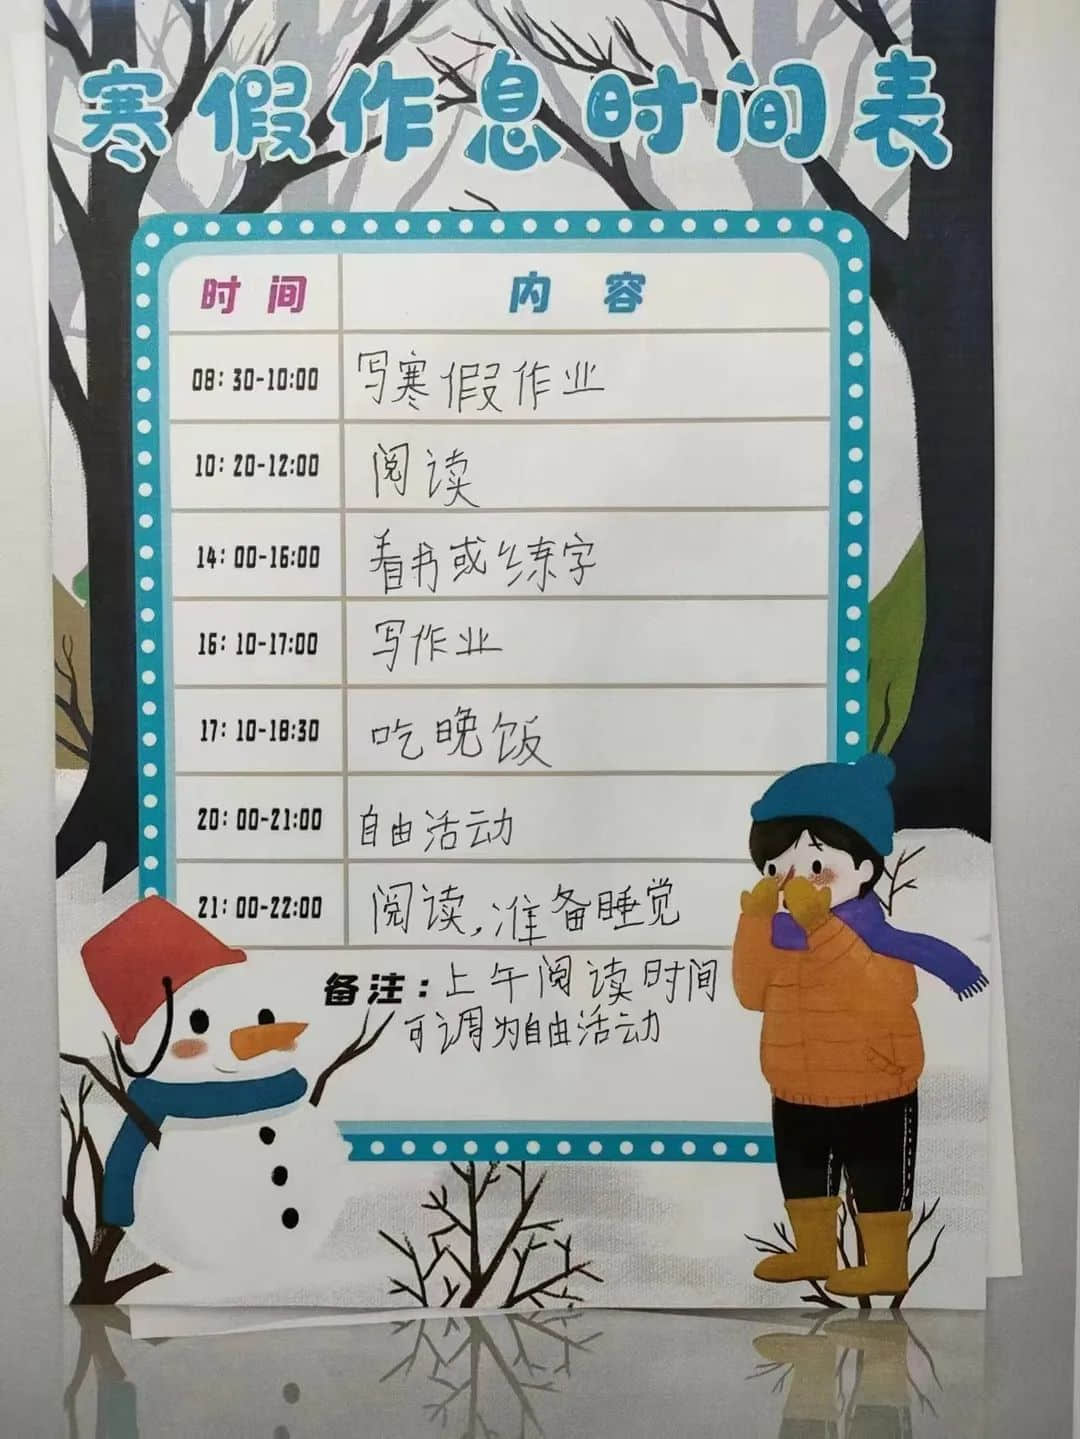 寒假作息时间表
时间 内容
08:30-10:00 写寒假作业
10:20-12:00 阅读
14:00-16:00 看书或练字
16:10-17:00 写作业
17:10-18:30 吃晚饭
20:00-21:00 自由活动
21:00-22:00 阅读,准备睡觉
备注:上午阅读时间
可调为自由活动